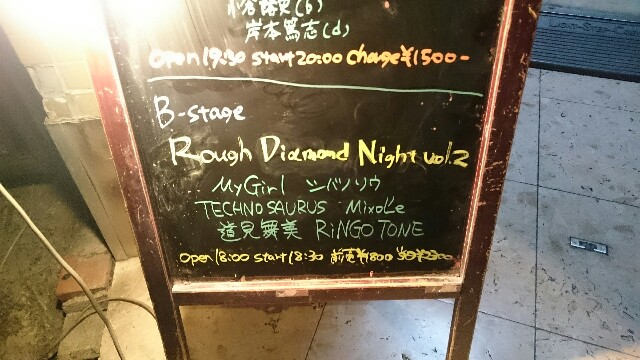 岸本篤志(d)
open 19:30 start 20:00 charge ¥1500-
B-stage
Rough Diamond Night vol.2
MyGirl シバノソウ
TECHNOSAURUS Mixo'Le
道見舞美 RiNGO TONE
open/18:00 start/18:30 前売¥1800 当日¥2300